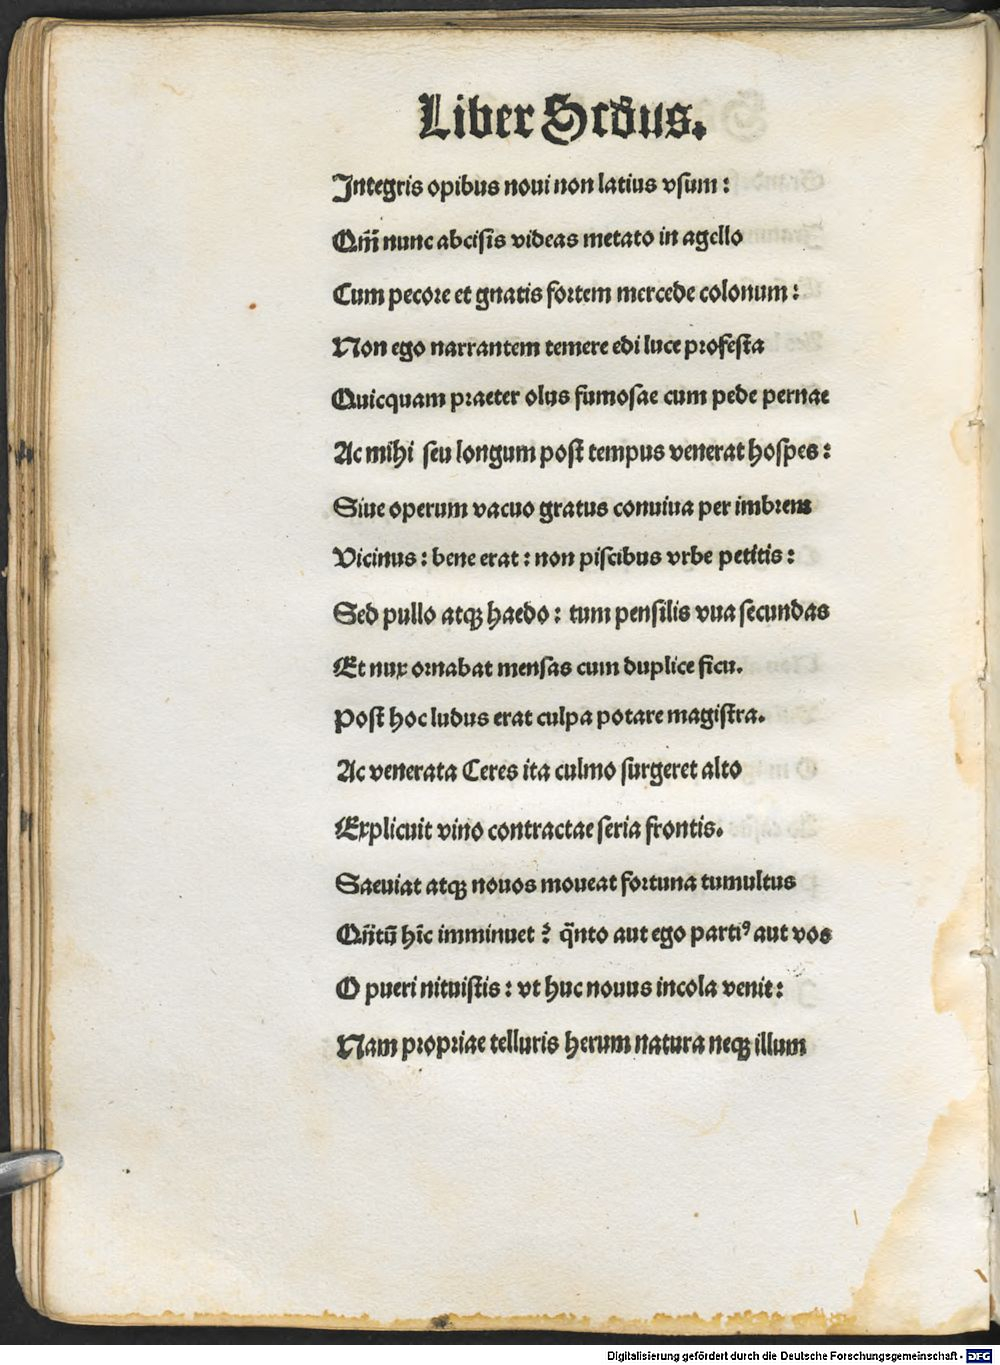 Liber Scd̃us.
Integris opibus noui non latius vsum :
Qm̃ nunc abcisis videas metato in agello
Cum pecore et gnatis fortem mercede colonum :
Non ego narrantem temere edi luce profesta
Quicquam praeter olus fumosae cum pede pernae
Ac mihi seu longum post tempus venerat hospes :
Siue operum vacuo gratus conuiua per imbrem
Vicinus : bene erat : non piscibus vrbe petitis :
Sed pullo atqꝫ haedo : tum pensilis vua secundas
Et nux ornabat mensas cum duplice ficu.
Post hoc ludus erat culpa potare magistra.
Ac venerata Ceres ita culmo surgeret alto
Explicuit vino contractae seria frontis.
Saeuiat atqꝫ nouos moueat fortuna tumultus
Qñtũ hĩc imminuet ? q̃nto aut ego partiꝰ aut vos
O pueri nituistis : vt huc nouus incola venit :
Nam propriae telluris herum natura neqꝫ illum
Digitalisierung gefördert durch die Deutsche Forschungsgemeinschaft - DFG